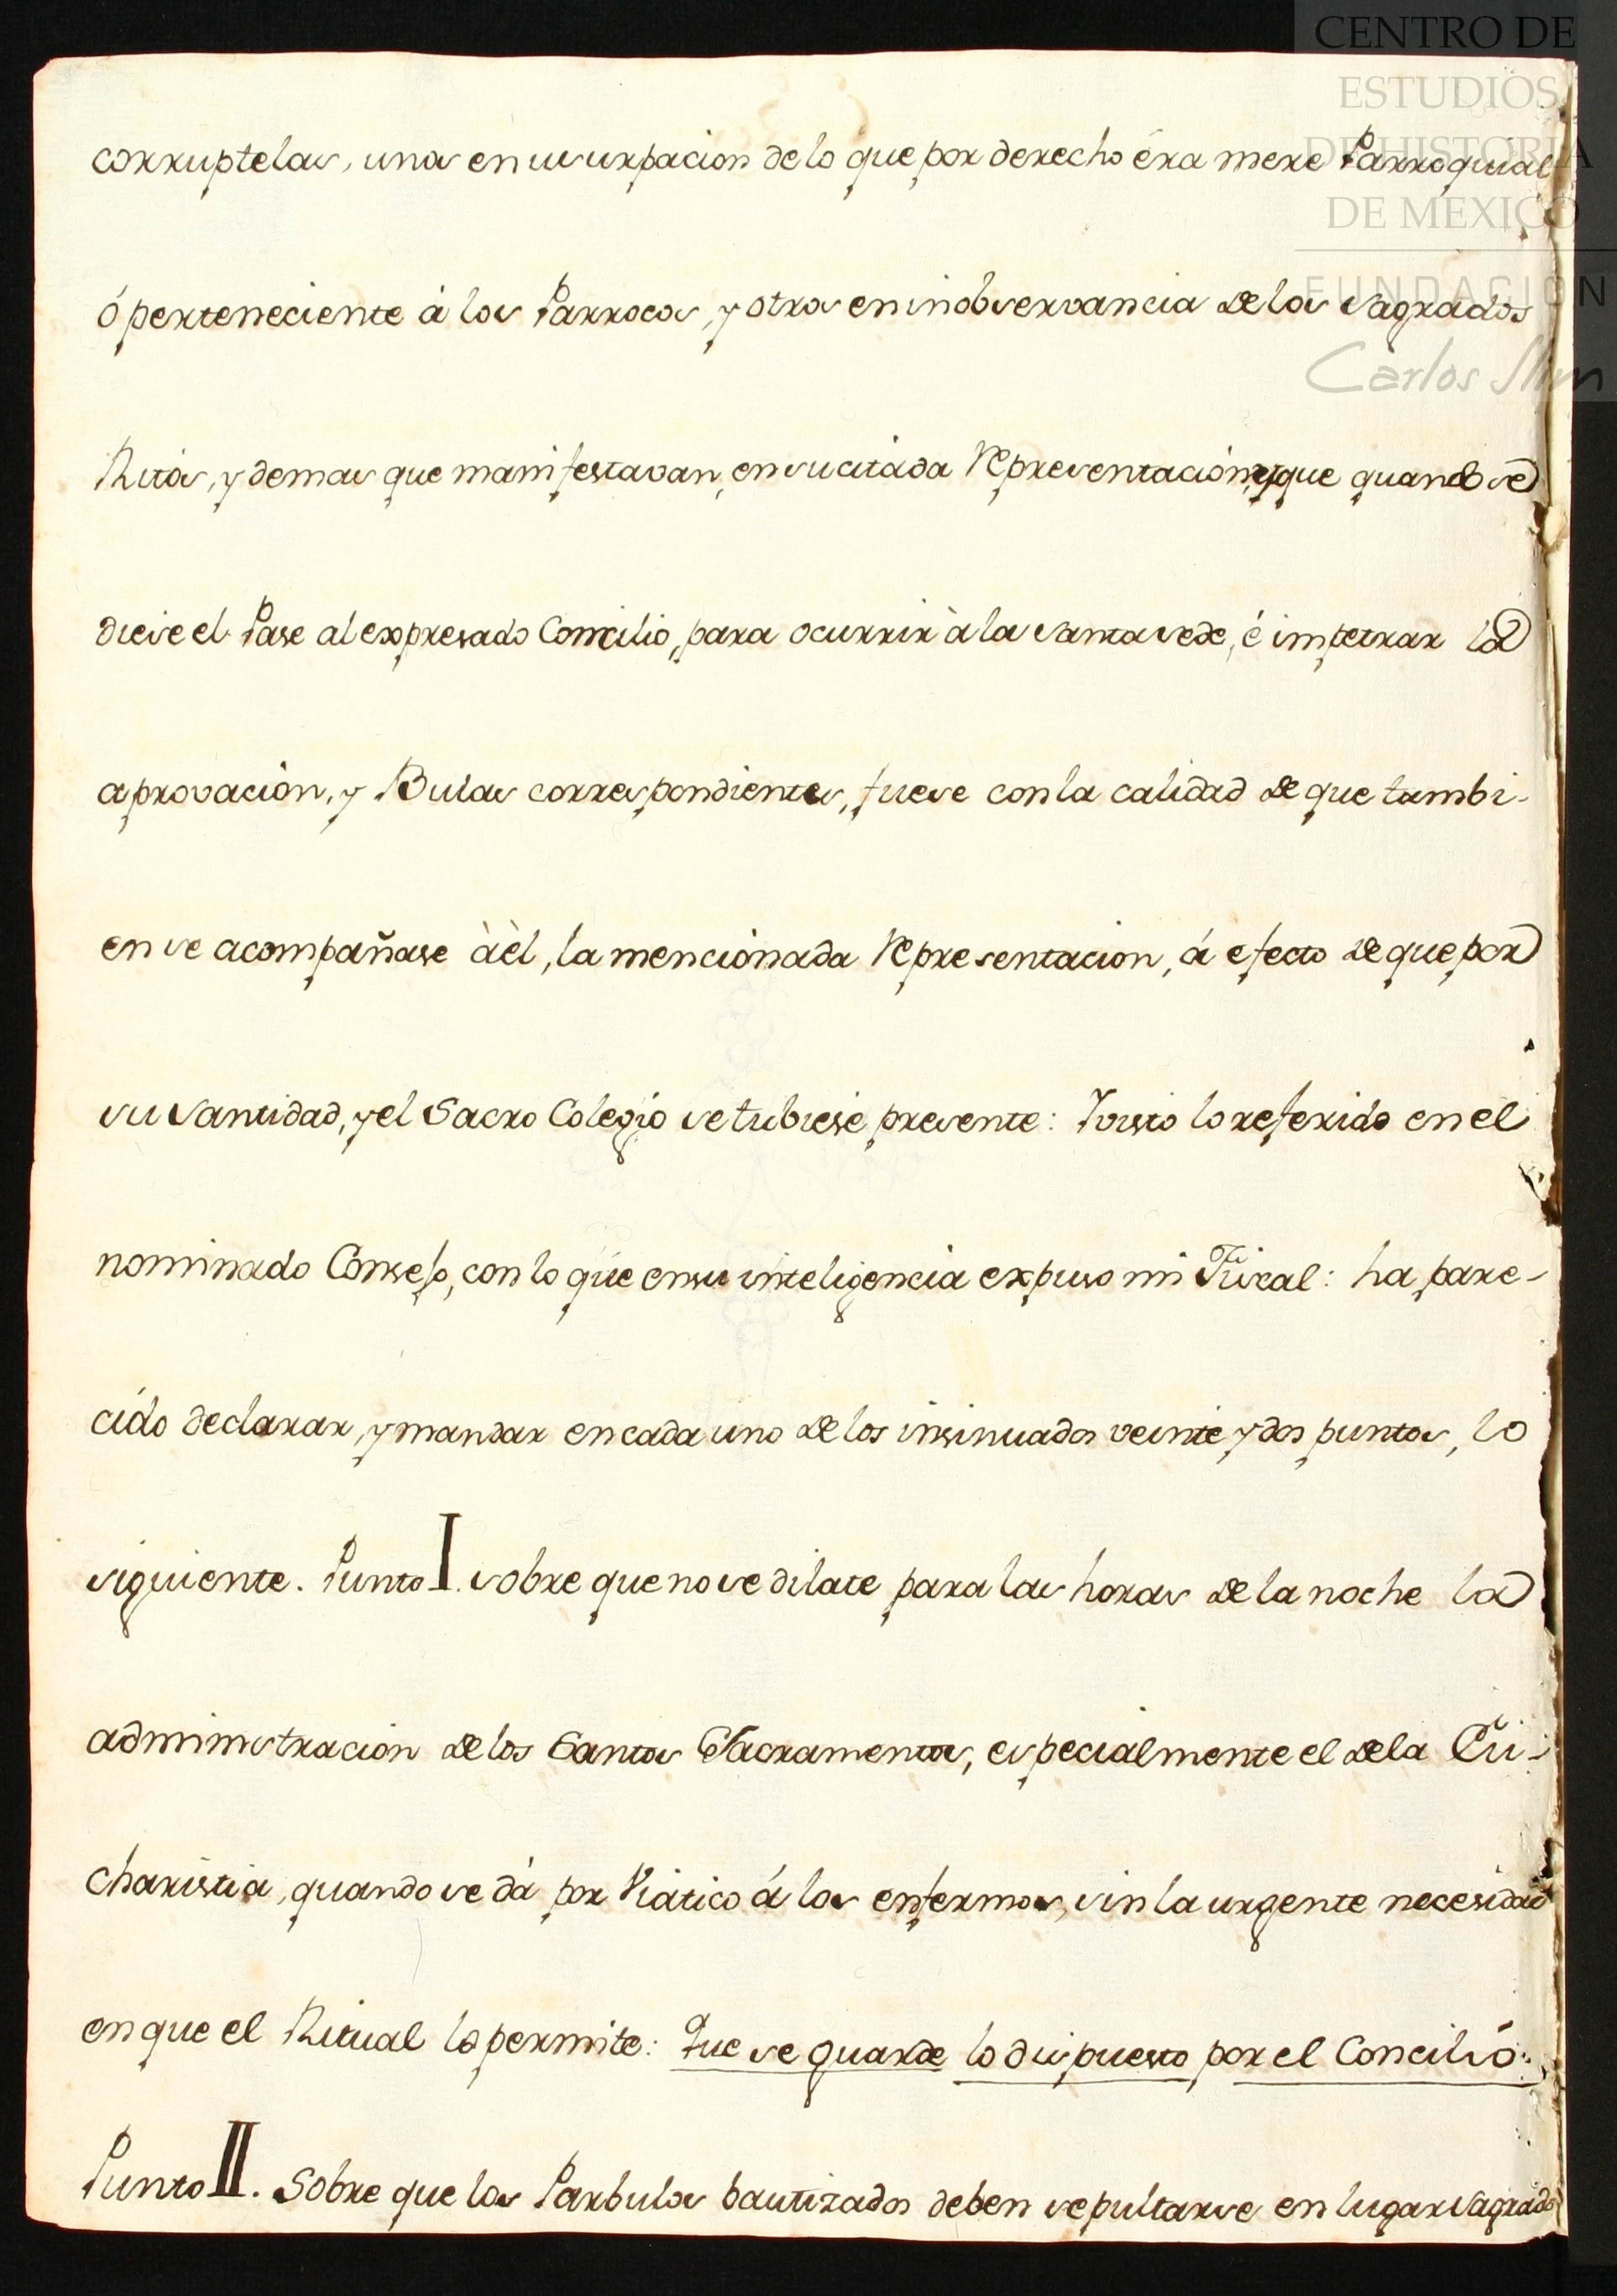 CENTRO DE
ESTUDIOS
DE HISTORIA
DE MEXICO
FUNDACION
Carlos Slim
corruptelas, unas en usurpacion de lo que por derecho éra mere Parroquial
ó perteneciente á los Parrocos, y otros en inobservancia de los sagrados
Ritos, y demas que manifestavan, en su citada Representación, y que quando se
diese el Pase al expresado Concilio, para ocurrir à la santa sede, é impetrar la
aprovacion, y Bulas correspondientes, fuese con la calidad de que tambi-
en se acompañase à èl, la mencionada Representacion, á efecto de que por
su santidad, y el Sacro Colegio se tubiese presente: Visto lo referido en el
nominado Consejo, con lo que en su inteligencia expuso mi Fiscal: ha pare-
cido declarar, y mandar en cada uno de los insinuados veinte y dos puntos, lo
siguiente. Punto I. sobre que no se dilate para las horas de la noche la
administracion de los Santos Sacramentos, especialmente el de la Eu-
charistia, quando se dà por Viatico á los enfermos, sin la urgente necesidad
en que el Ritual lo permite: Que se guarde lo dispuesto por el Concilió:
Punto II. Sobre que los Parbulos bautizados deben sepultarse en lugar sagrado